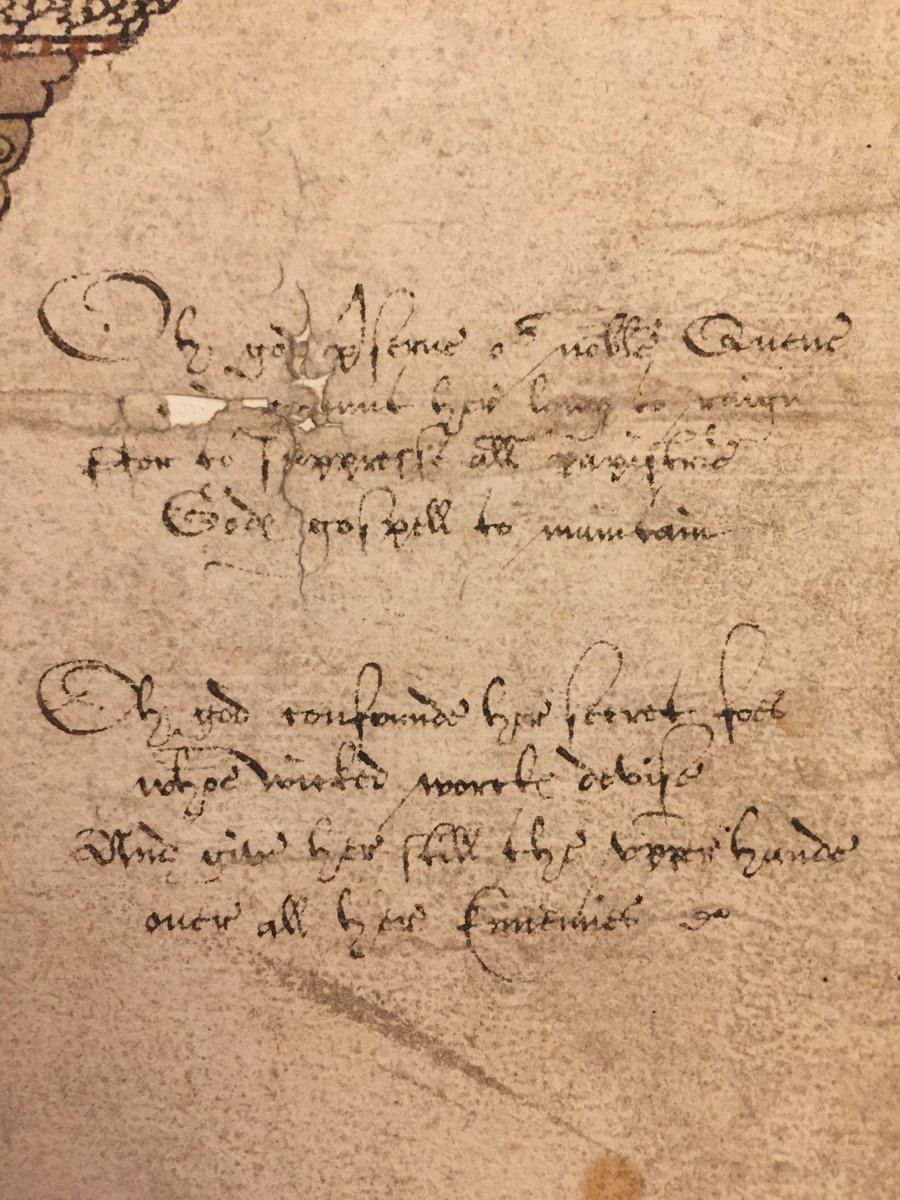 Oh god p̱serue oʳ noble Quene
graunt her long to raign
ffor to suppresse all papistrie
Gods gospell to maintain
Oh god confounde her secret foes
whose wicked workes devise
And give her still the vpper hande
over all her Ennemies &c